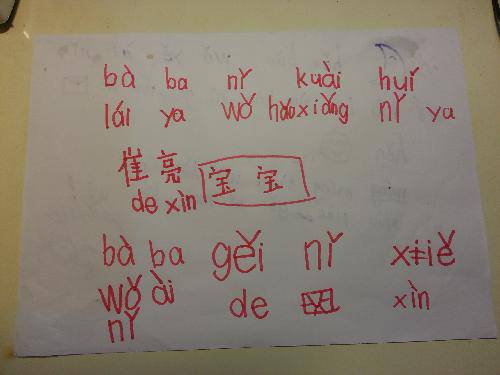 bà ba nǐ kuài huí
lái ya wǒ hǎo xiǎng nǐ ya
崔亮 宝宝
de xìn
bà ba gěi nǐ xiě
wǒ ài de xìn
nǐ